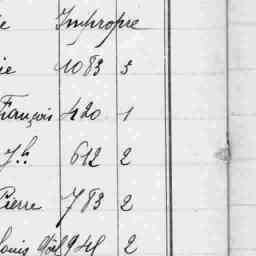 e Impropre
ie 1083 5
François 420 1
Jh 612 2
Pierre 783 2
Louis Noël 941 2